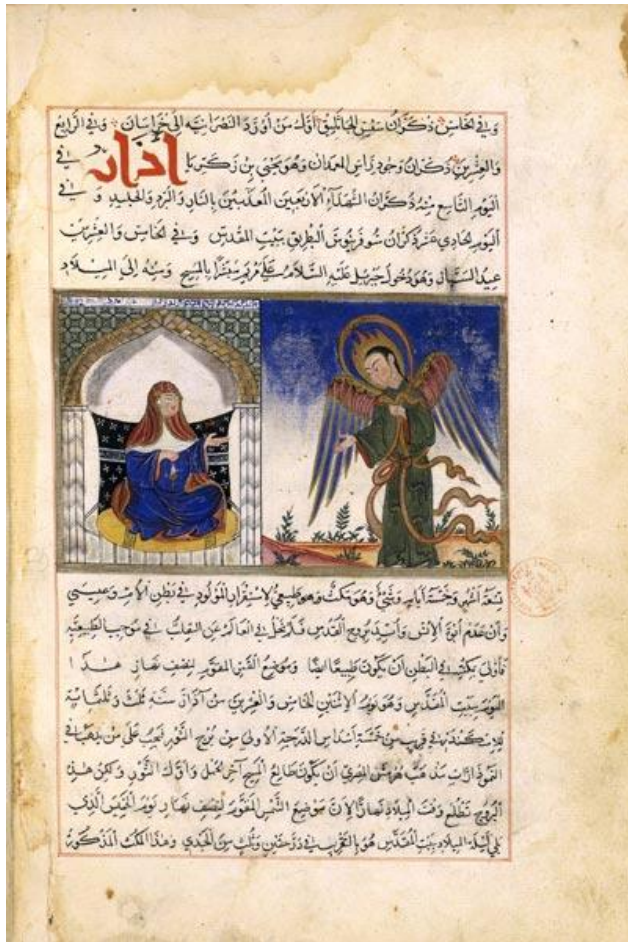 وفي الخامس ذكران سفس الجاثليق اول من اورد النصرانية الى خراسان وفي الرابع
والعشرين ذكران وجود راس المعمدان وهو يحيى بن زكريا اذار وفي
اليوم التاسع منه ذكران الشهداء الاربعين المعذبين بالنار والبرد والجليد وفي
اليوم الحادي عشر ذكران سوفرنيوس البطريق ببيت المقدس وفي الخامس والعشرين
عيد السبار وهو دخول جبرئيل عليه السلام على مريم مبشرا بالمسيح ومنه الى الميلاد
تسعة اشهر وخمسة ايام وشئ وهو مكث وهو طبيعي لاستقرار المولود في بطن الام وعيسى
وان عدم ابوة الانس وايد بروح القدس فلم يخل في العالم عن التقلب في موجب الطبيعة
فاولى بمكثه في البطن ان يكون طبيعيا ايضا وموضع القمر المقوم لنصف نهار هذا
اليوم ببيت المقدس وهو يوم الاثنين الخامس والعشرين من آذار سنة ثلث وثلثمائة
للاسكندر في قريب من خمسة اسداس الدرجة الاولى من برج الثور فيجب على من يذهب في
النموذارات مذهب هرمس المصري ان يكون طالع المسيح آخر الحمل واول الثور ولكن هذه
البروج تطلع وقت الميلاد نهارا لان موضع الشمس المقوم لنصف نهار يوم الخميس الذي
يلي ليلة الميلاد ببيت المقدس هو بالتقريب في درجتين وثلث من الجدي وهذا المكث المذكور